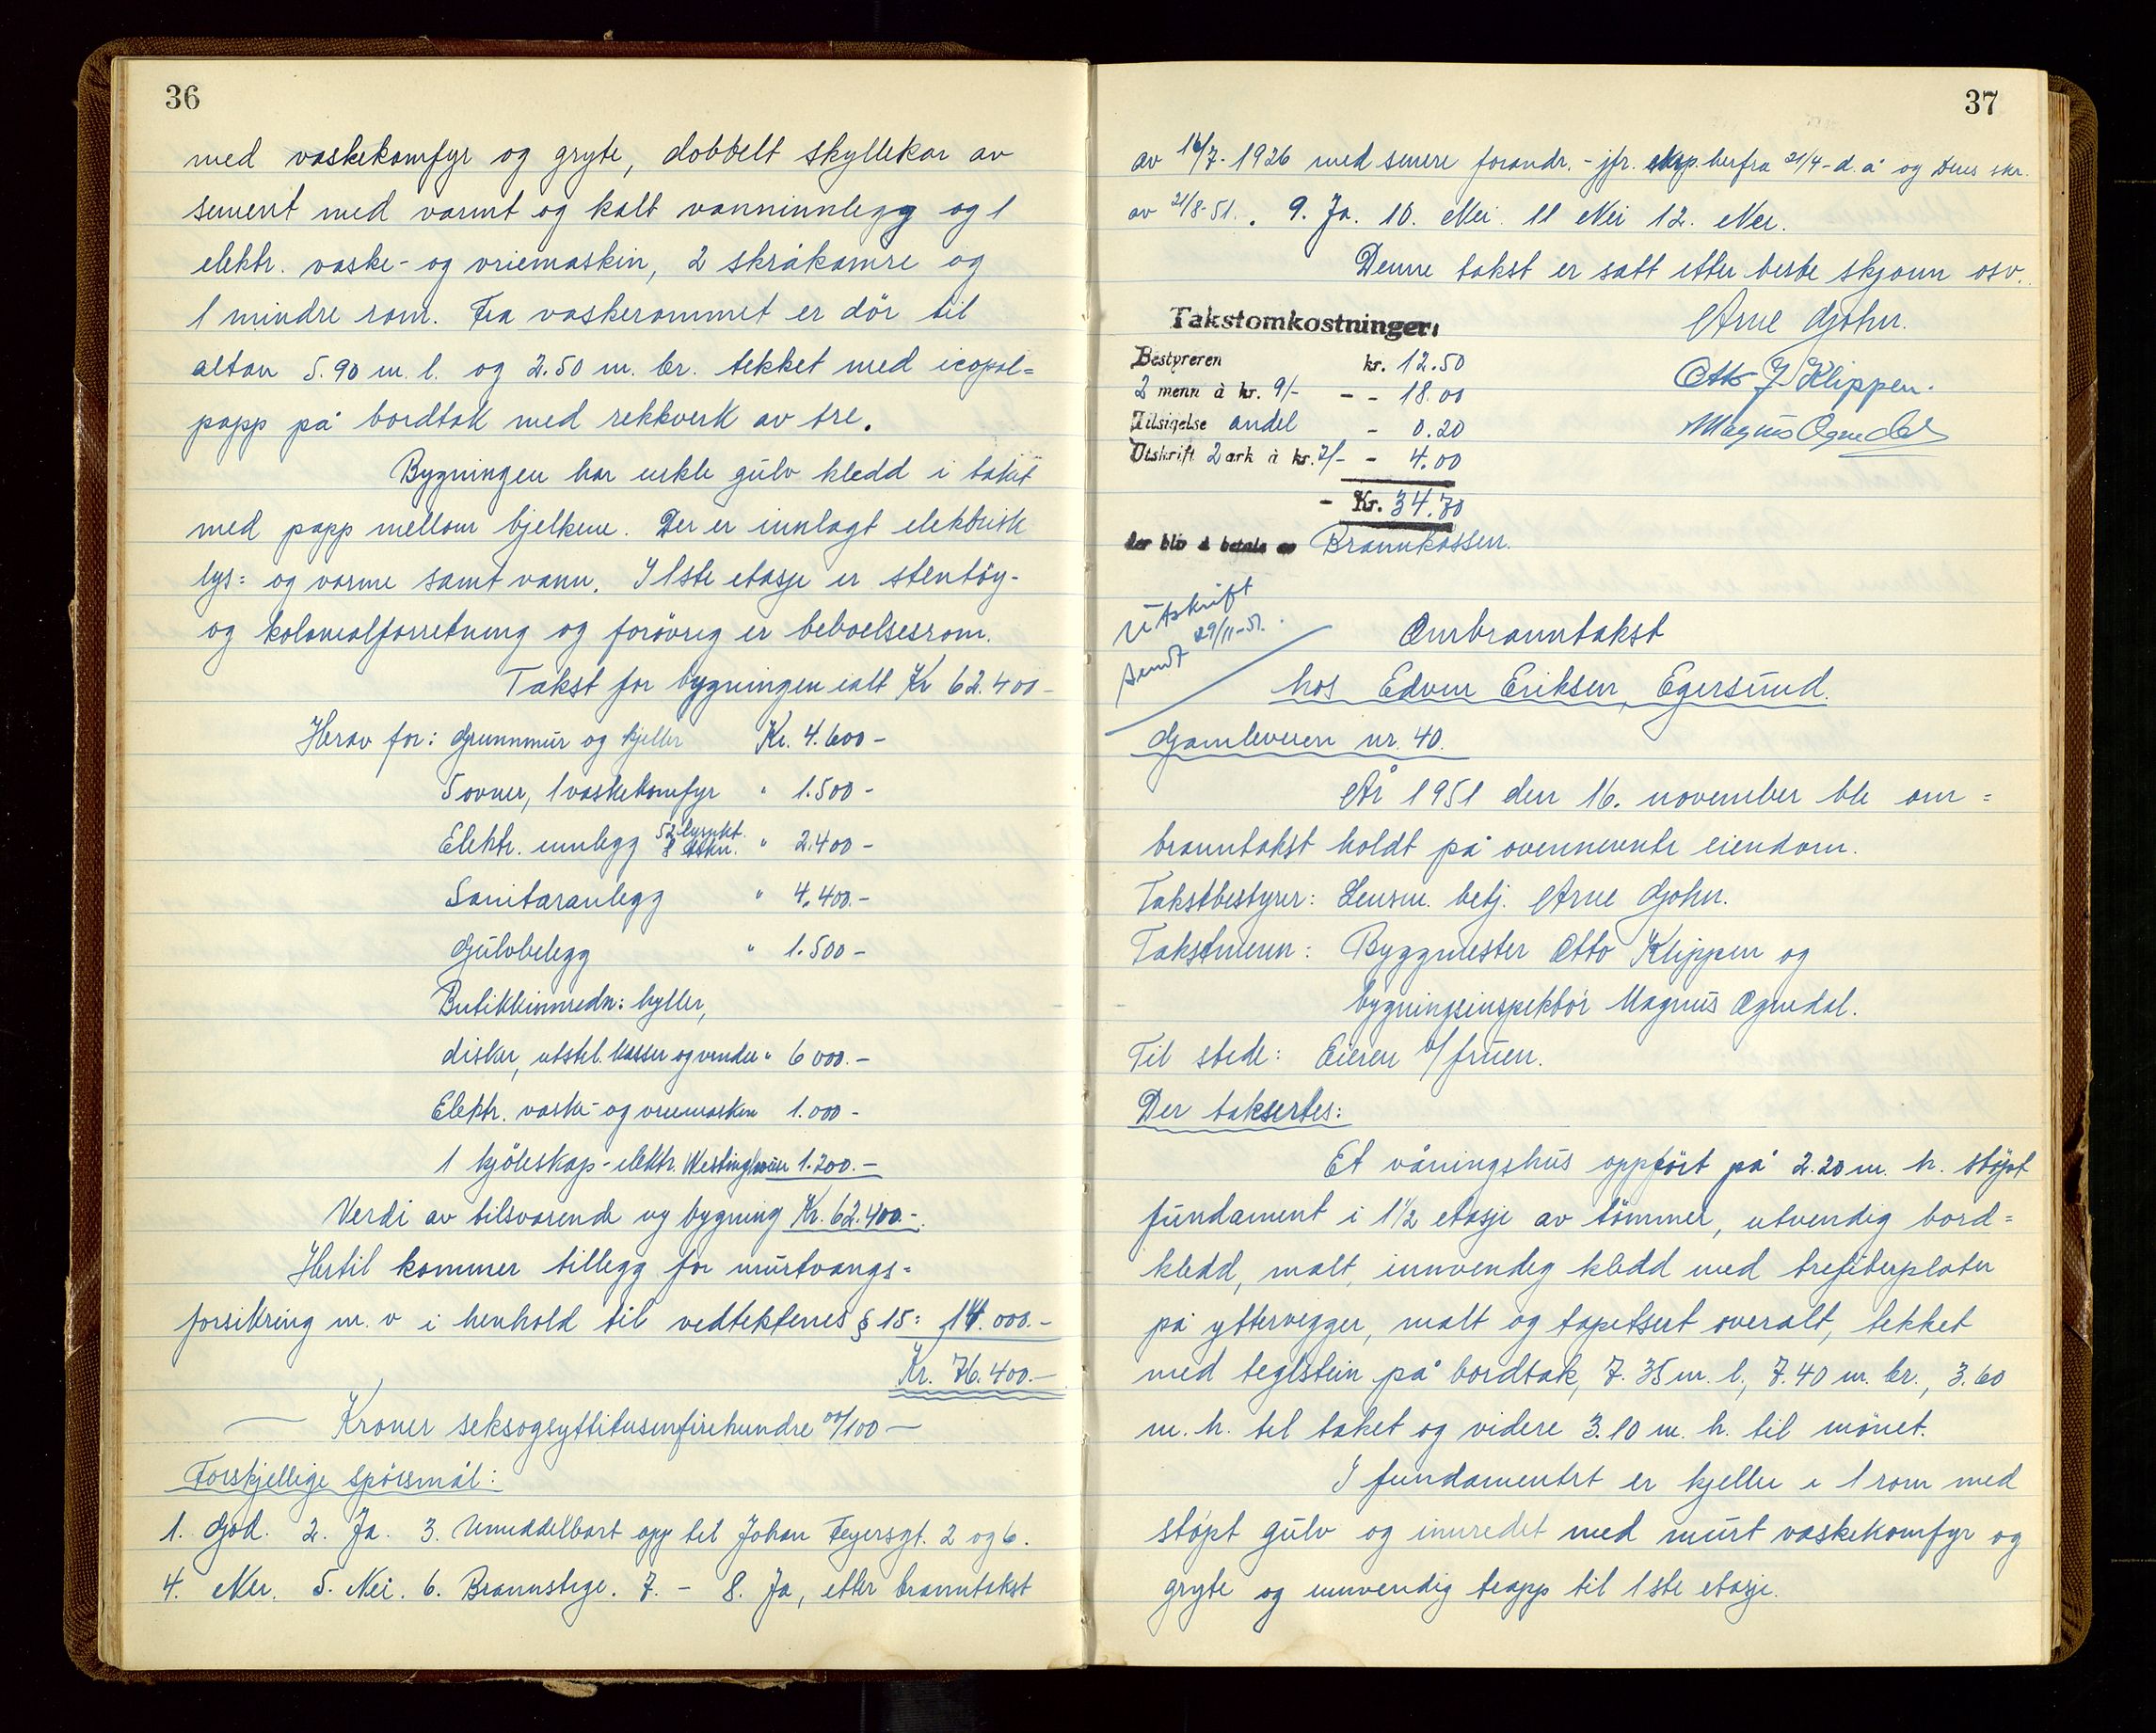 36
med vaskekomfyr og gryte, dobbelt skyllekar av
sement med varmt og kalt vanninnlegg og 1
elektr. vaske- og vriemaskin, 2 skråkamre og
1 mindre rom. Fra vaskerommet er dör til
altan 5.90 m. l. og 2.50 m. br. tekket med icopal=
papp på bordtak med rekkverk av tre.
Bygningen har enkle gulv kledd i taket
med papp mellom bjelkene. Der er innlagt elektrisk
lys= og varme samt vann. I 1ste etasje er stentöy-
og kolonialforretning og forövrig er beboelsesrom.
Takst for bygningen ialt Kr 62.400-
Herav for: Grunnmur og kjeller Kr. 4.600-
5 ovner, 1 vaskekomfyr " 1.500-
Elektr. innlegg 52 lyspkt. 8 stikk. " 2.400-
Sanitæranlegg " 4.400.-
Gulvbelegg " 1.500-
Butikkinnredn: hyller,
disker, utstil. kasser og vinduer " 6000.-
Elektr. vaske- og vriemaskin 1.000-
1 kjöleskap - elektr. Westinghouse 1.200.-
Verdi av tilsvarende ny bygning Kr. 62.400.-
Hertil kommer tillegg for murtvangs=
forsikring m. v i henhold til vedtektenes § 15: 14.000.-
Kr. 76.400.-
— Kroner seksogsyttitusenfirehundre 00/100 —
Forskjellige spörsmål:
1. God. 2. Ja. 3. Umiddelbart opp til Johan Feyersgt. 2 og 6.
4. Nei. 5. Nei. 6. Brannstige. 7. - 8. Ja, etter branntakst
37
av 16/7-1926 med senere forandr. - jfr. eksp. herfra 21/4-d.å og Deres skr.
av 21/8-51. 9. Ja. 10. Nei. 11 Nei 12. Nei.
Denne takst er satt etter beste skjönn osv.
Arne Gjohn.
Otto J Klippen.
Magnus Ognedal
Takstomkostninger:
Bestyreren kr. 12.50
2 menn à kr. 9/- - - 18.00
Tilsigelse andel - 0.20
Utskrift 2 ark à kr. 2/- - 4.00
- Kr. 34.70
der blir å betale av Brannkassen.
Utskrift
sendt 29/11-51.
Ombranntakst
hos Edvin Eriksen, Egersund.
Gamleveien nr. 40.
År 1951 den 16. november ble om=
branntakst holdt på ovennevnte eiendom.
Takstbestyrer: Lensm. betj. Arne Gjohn.
Takstmenn: Byggmester Otto Klippen og
bygningsinspektör Magnus Ognedal.
Til stede: Eieren v/ fruen.
Der taksertes:
Et våningshus oppfört på 2.20 m. h. stöpt
fundament i 1½ etasje av tömmer, utvendig bord=
kledd, malt, innvendig kledd med trefiberplater
på yttervegger, malt og tapetsert overalt, tekket
med teglstein på bordtak, 7.35 m. l., 7.40 m. br., 3.60
m. h. til taket og videre 3.10 m. h. til mönet.
I fundamentet er kjeller i 1 rom med
stöpt gulv og innredet med murt vaskekomfyr og
gryte og innvendig trapp til 1ste etasje.